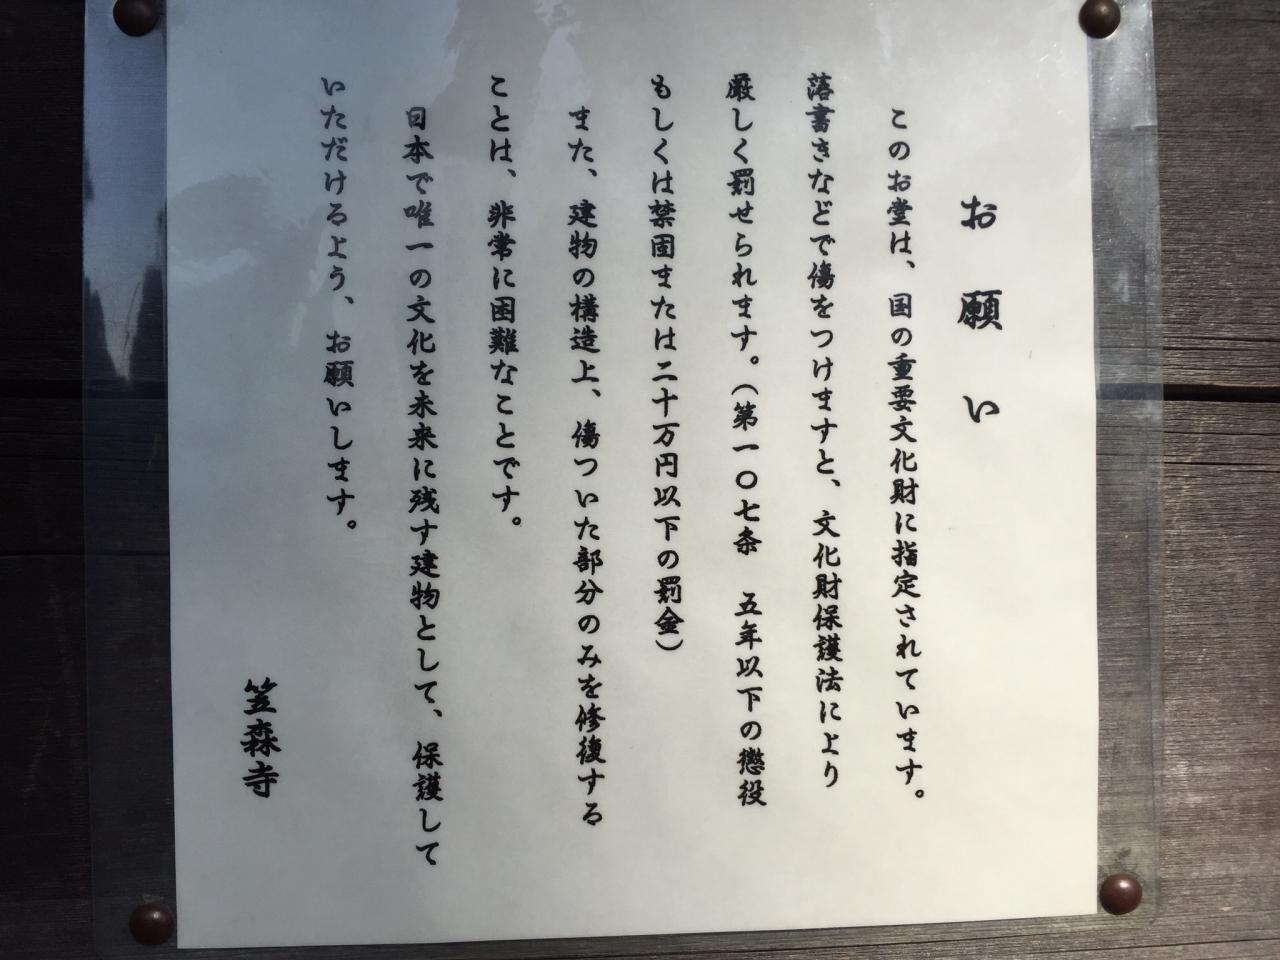 お願い
このお堂は、国の重要文化財に指定されています。
落書きなどで傷をつけますと、文化財保護法により
厳しく罰せられます。（第一〇七条　五年以下の懲役
もしくは禁固または二十万円以下の罰金）
また、建物の構造上、傷ついた部分のみを修復する
ことは、非常に困難なことです。
日本で唯一の文化を未来に残す建物として、保護して
いただけるよう、お願いします。
笠森寺